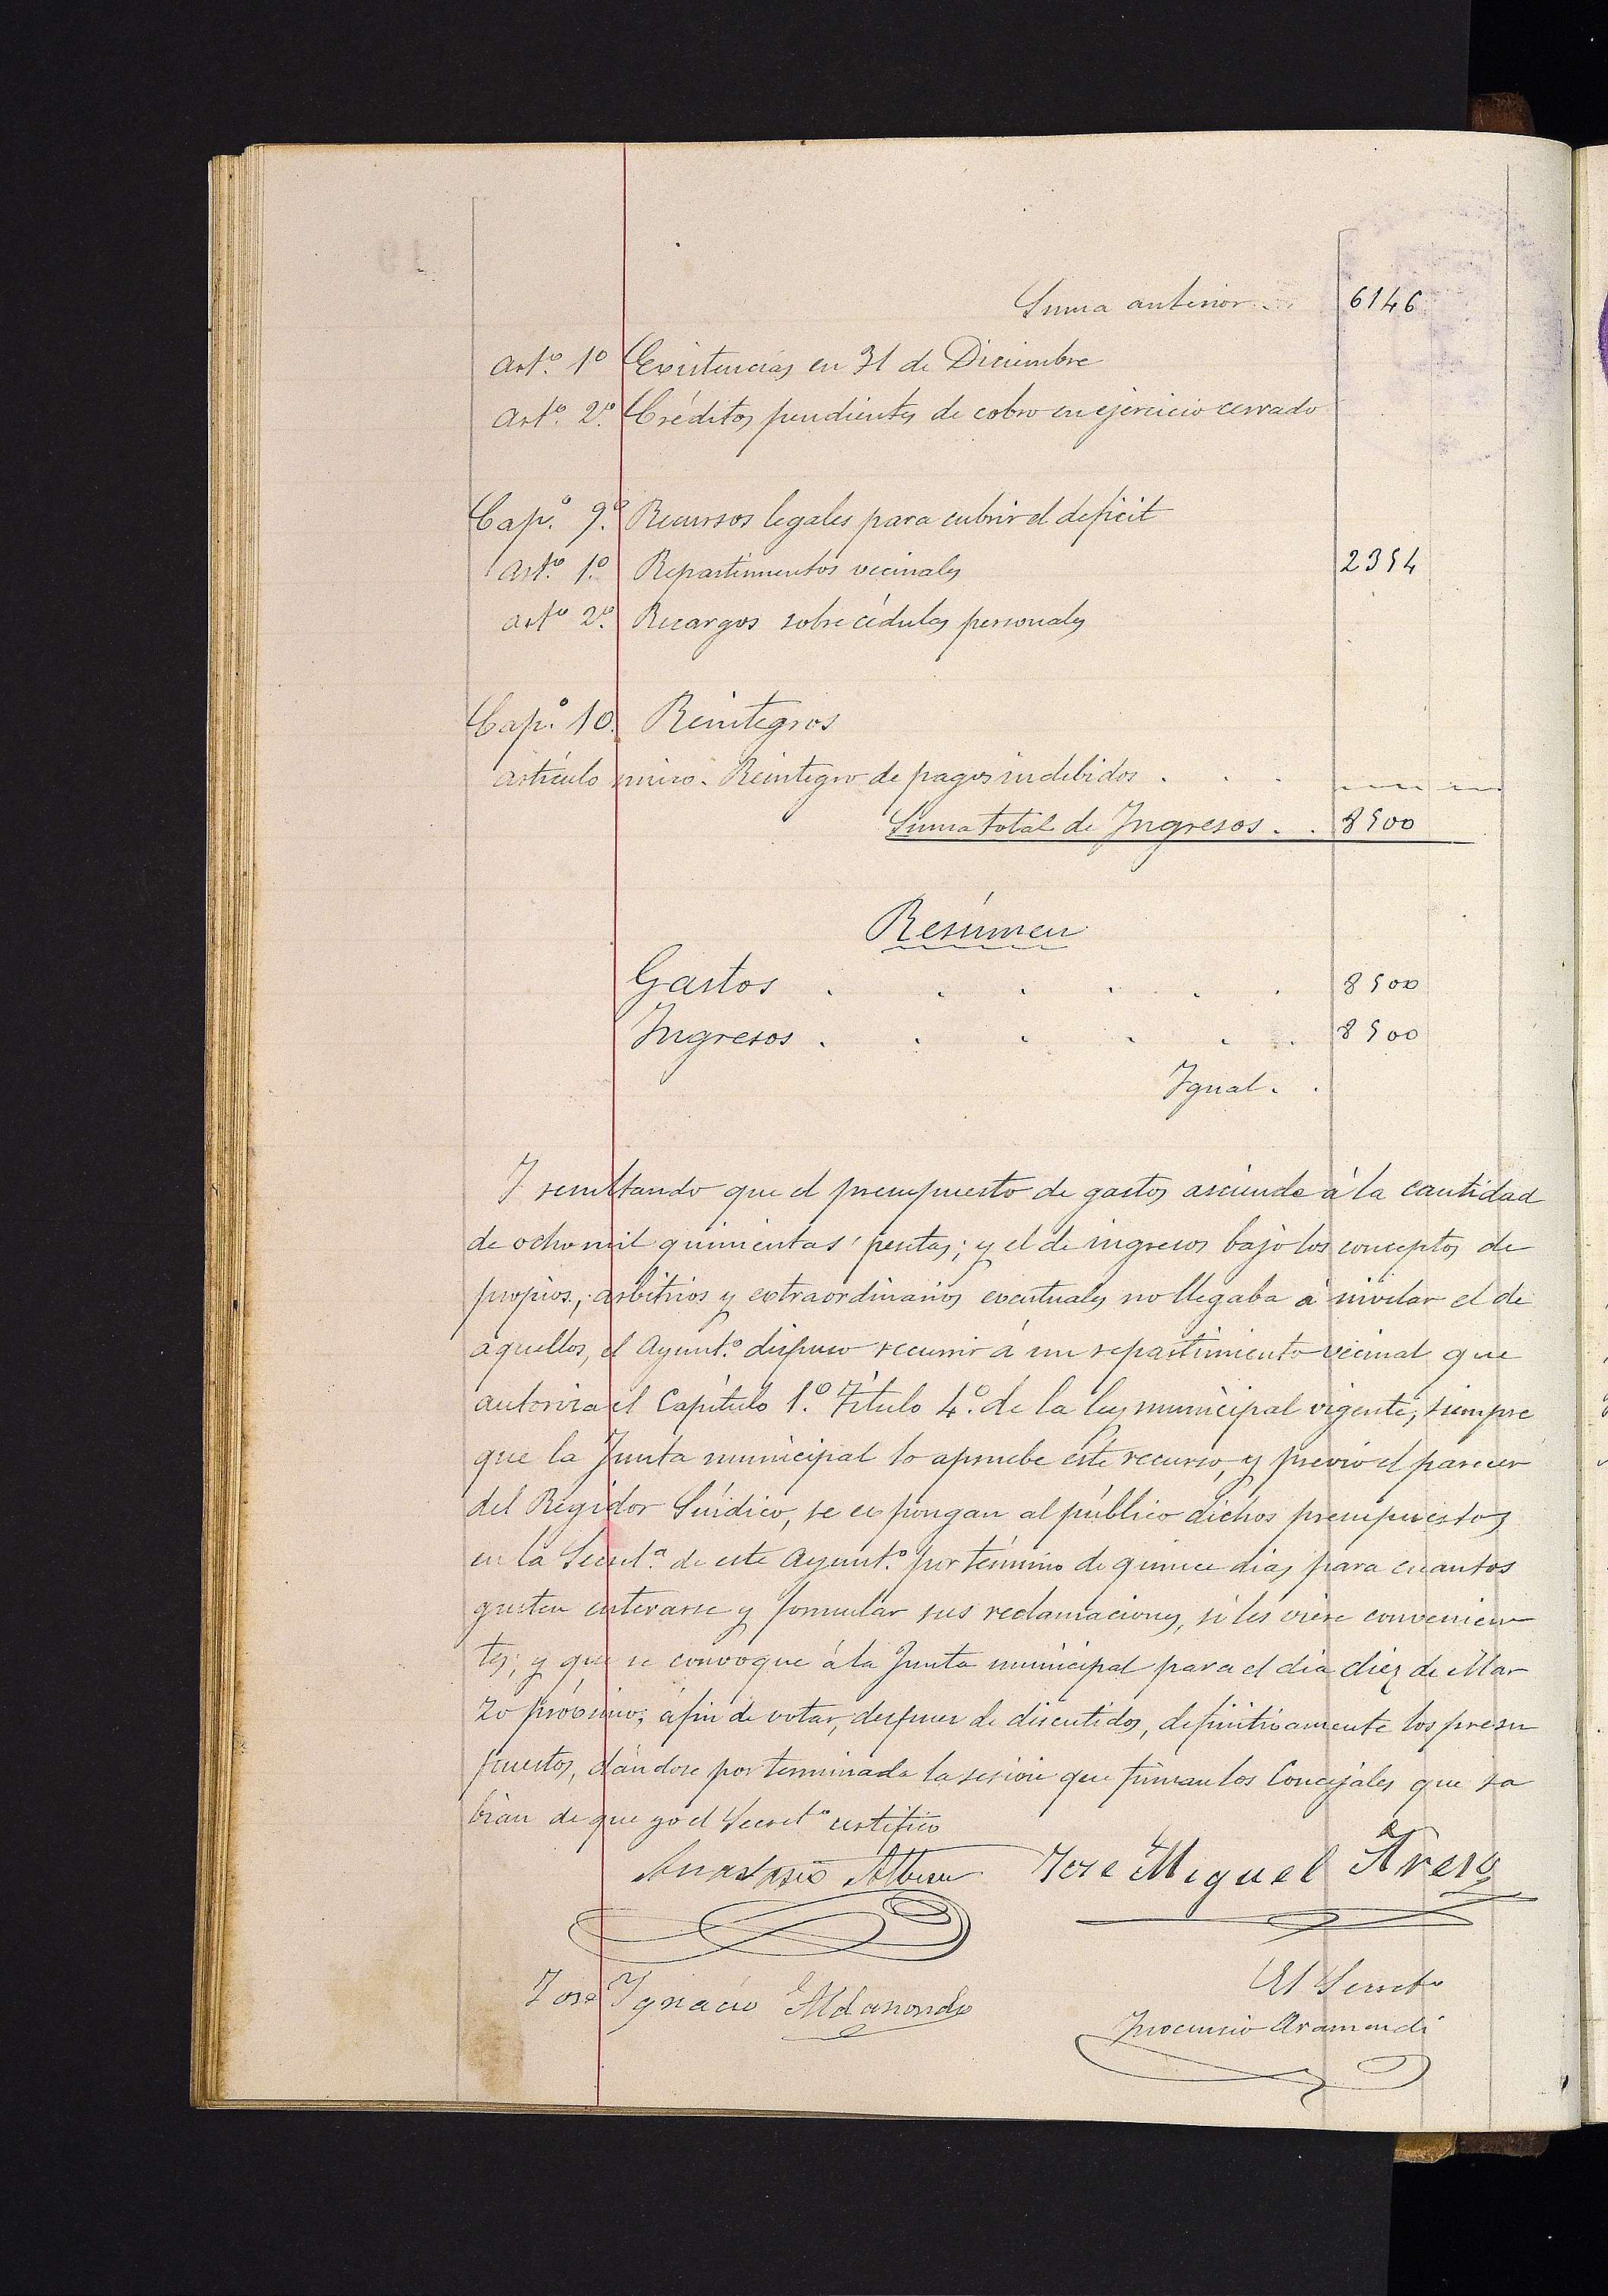 Suma anterior . . 6146
Artº. 1º Existencias en 31 de Diciembre
Artº. 2º. Créditos pendientes de cobro en ejercicio cerrado
Cap.º 9.º Recursos legales para cubrir el deficit
Artº. 1º. Repartimientos vecinales 2354
Artº 2º. Recargos sobre cédulas personales
Cap.º 10. Reintegros
Artículo único. Reintegro de pagos indebidos . . .
Suma total de Ingresos. . 8500
Resúmen
Gastos . . . . . . 8500
Ingresos . . . . . . 8500
Igual. .
Y resultando que el presupuesto de gastos asciende á la cantidad
de ocho mil quinientas pesetas; y el de ingresos bajo los conceptos de
propios, arbitrios y extraordinarios eventuales no llegaba á nivelar el de
aquellos, el Ayunt.º dispuso recurrir á un repartimiento vecinal que
autoriza el Capítulo 1.º Título 4.º de la ley municipal vigente, siempre
que la Junta municipal lo apruebe este recurso, y previo el parecer
del Regidor Síndico, se expongan al público dichos presupuestos
en la Secret.ª de este Ayunt.º por término de quince dias para cuantos
gusten enterarse y formular sus reclamaciones, si les viere convenien
tes; y que se convoque á la Junta municipal para el dia diez de Mar
zo próximo, á fin de votar, despues de discutidos, definitivamente los presu
puestos, dándose por terminada la sesión que firman los Concejales que sa
bían de que yo el Secretº certifico
Anastasio Albisu José Miguel Areso
José Ignacio Aldasondo El Secretº
Inocencio Aramendi